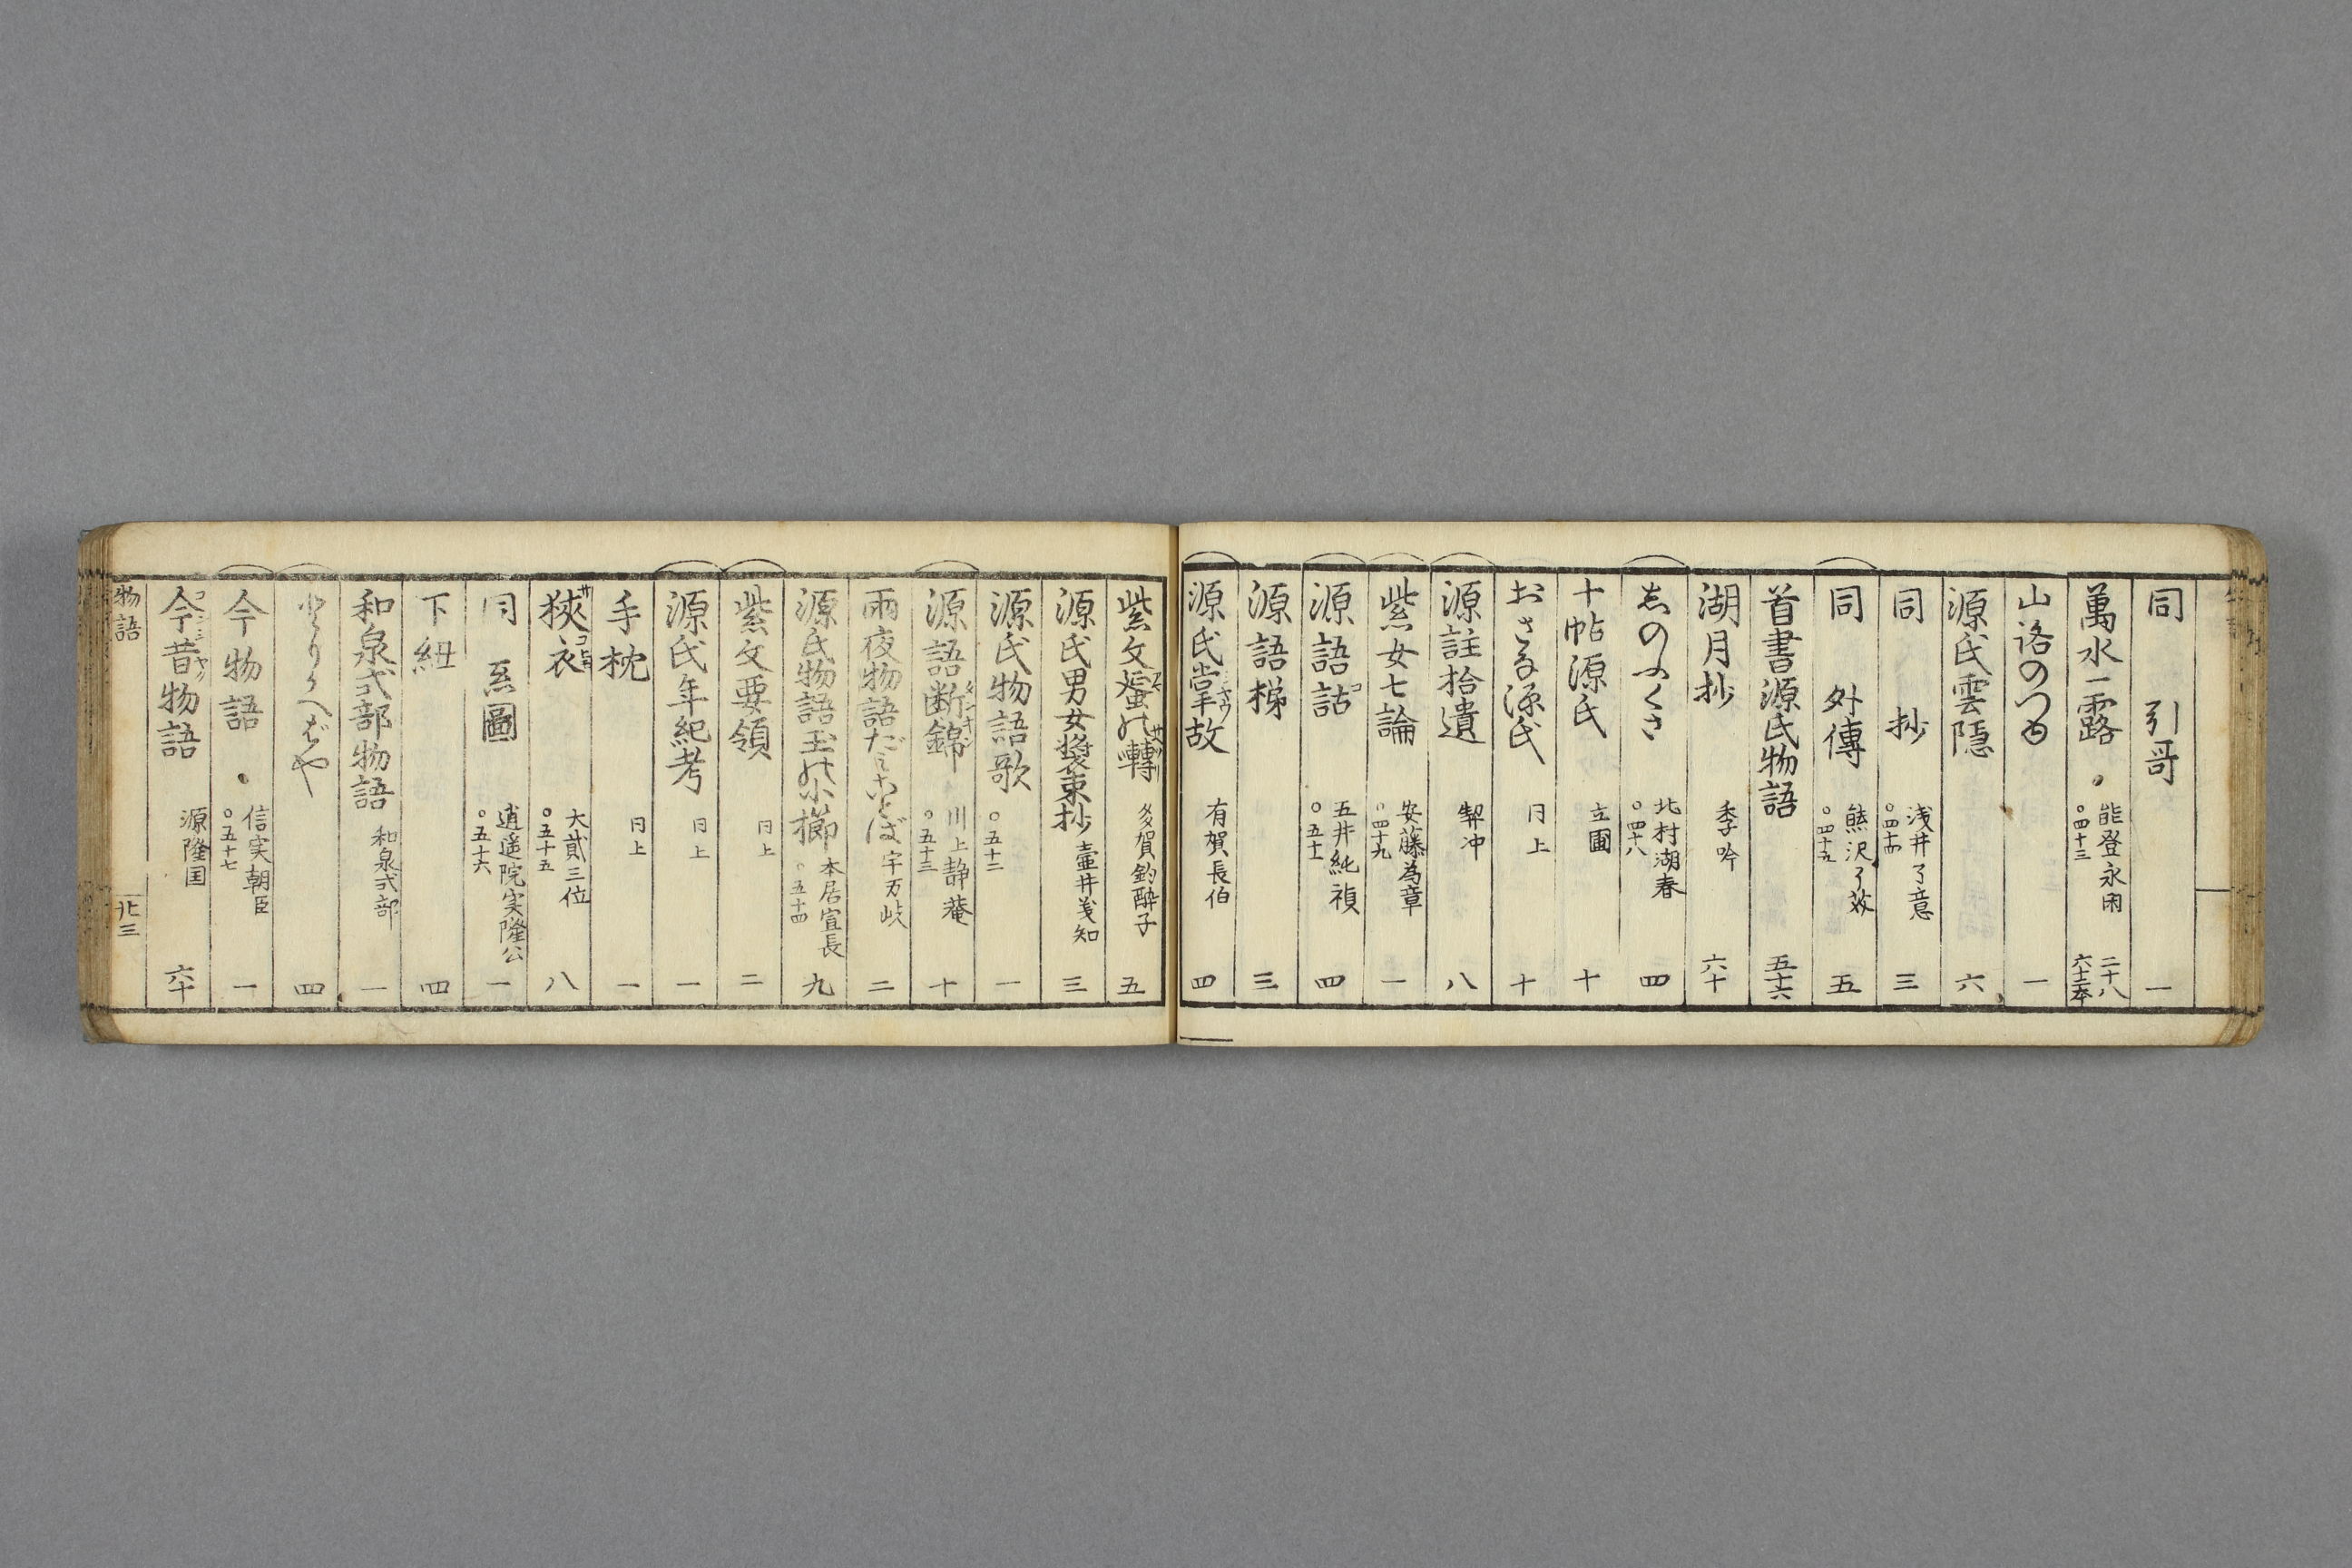 同 引哥 一
萬水一露 能登永閑 ○四十三 二十八 六十二本
山路のつゆ 一
源氏雲隠 六
同 抄 浅井了意 ○四十四 三
同 外傳 熊沢了效 ○四十五 五
首書源氏物語 五十六
湖月抄 季吟 六十
志のふくさ 北村湖春 ○四十八 四
十帖源氏 立圃 十
おさな源氏 日上 十
源註拾遺 契沖 八
紫女七論 安藤為章 ○四十九 一
源語詁 五井純禎 ○五十一 四
源語梯 三
源氏掌故 有賀長伯 四
紫文蜑の囀 多賀釣酔子 五
源氏男女装束抄 壷井義知 三
源氏物語歌 ○五十二 一
源語断錦 川上静菴 ○五十三 十
雨夜物語だミことば 宇万岐 二
源氏物語玉の小櫛 本居宣長 ○五十四 九
紫文要領 日上 二
源氏年紀考 日上 一
手枕 日上 一
狭衣 サコロモ 大貮三位 ○五十五 八
同 系圖 逍遥院実隆公 ○五十六 一
下紐 四
和泉式部物語 和泉式部 一
とりかへばや 四
今物語 信実朝臣 ○五十七 一
今昔物語 源隆国 六十
物語 北三